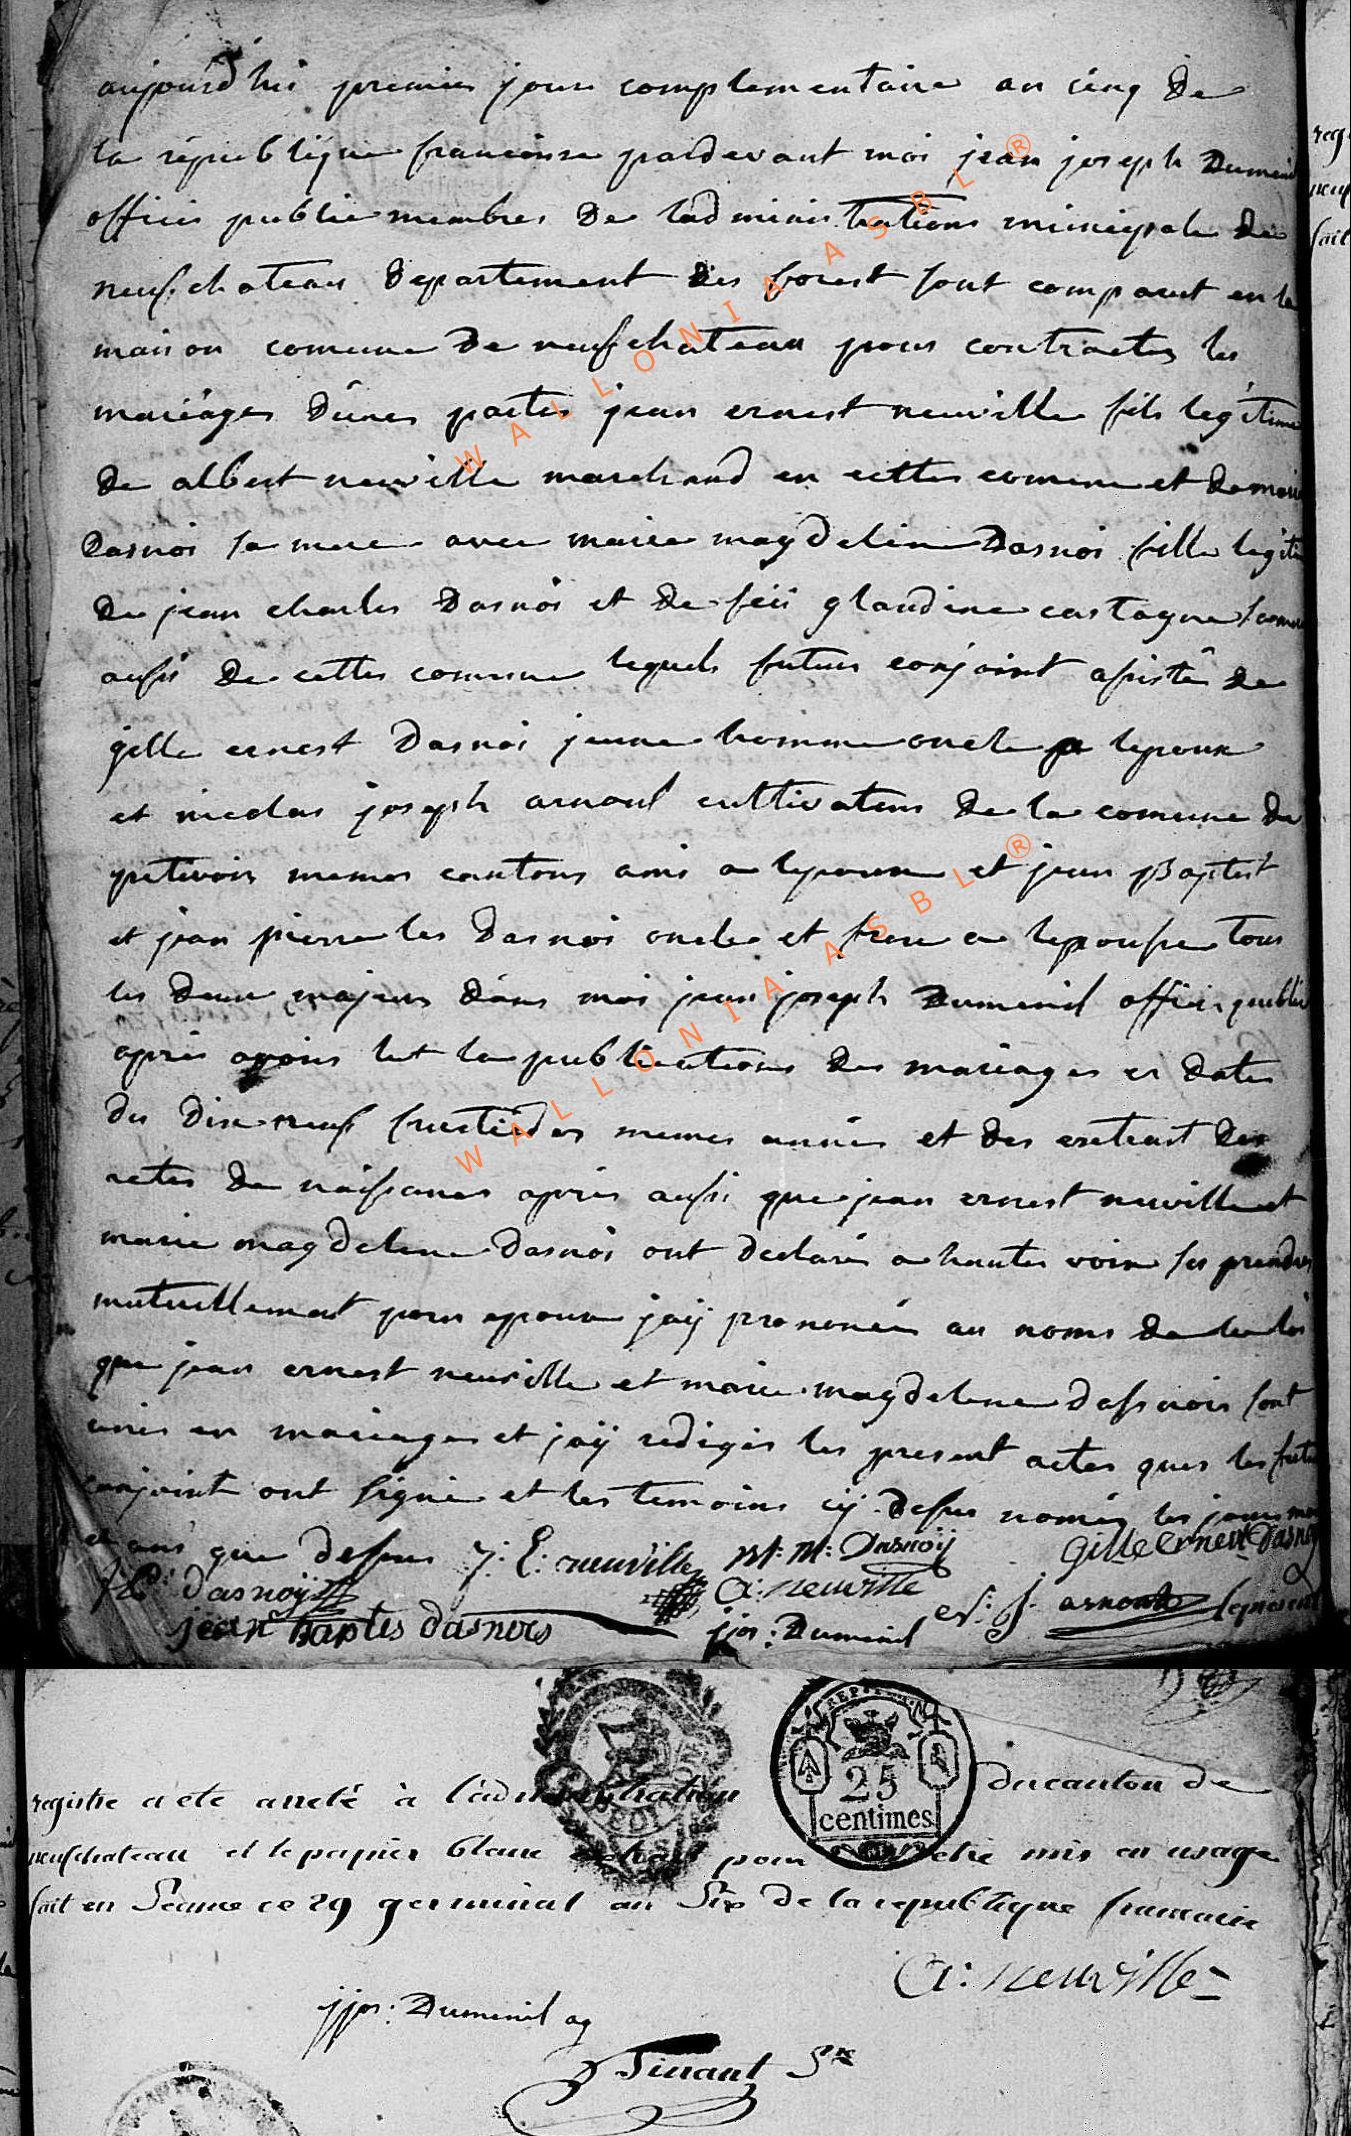 aujourd'hui premier jour complementaire an cinq de
la républiques francoise pardevant moi jean joseph Dumenil
officir public membres de ladministrations municipale de
neufchateau departement des forest sont comparut en la
maison comune de neufchateau pour contracter les
mariâges d'unes partes jean ernest neuville fils legitime
de albert neuville marchand en cettes comune et de marie
dasnoi sa mere avec marie magdeleine Dasnoi fille legitime
de jean charles dasnoi et de feü glaudine castagne
aussi de cettes comune lequels futurs conjoint asisté de
gille ernest dasnoi jeune homme oncle a lepoux
et nicolas joseph arnoul cultivateur de la comune de
petitvoir memes cantons ami a lepoux et jean Baptist
et jean pierre les dasnoi oncle et frere a lepouse tous
les deux majeurs dans moi jean joseph Dumenil officir public
apres avoirs lut la publications des mariages en dates
du dix neuf fructidor memes années et des extrait des
actes de naissances apres aussi que jean ernest neuville et
marie magdelene dasnoi ont declarés a hautes voix ses prendres
mutuellement pour epoux jaÿ prononcés au noms de la loi
que jean ernest neuville et marie magdelene dassnois sont
unis en mariages et jaÿ redigés les present actes ques les futurs
conjoint ont signé et les temoins cÿ dessus només les jours mois
et ans que dessus J: E: neuville M: M: Dasnoÿ Gille Ernest Dasnoy
dasnoÿ A: Neuville N: J: arnould
jean baptes dasnois jjos: Dumenil
25
centimes
registre a eté arreté à l'administration du canton de
neufchateau et le papier blanc pour etre mis en usage
fait en Séance ce 29 germinal an Six de la republique francaise
A: Neuville
jjos: Dumenil ag
Sinant Sre
WALLONIA ASBL ®
WALLONIA ASBL ®